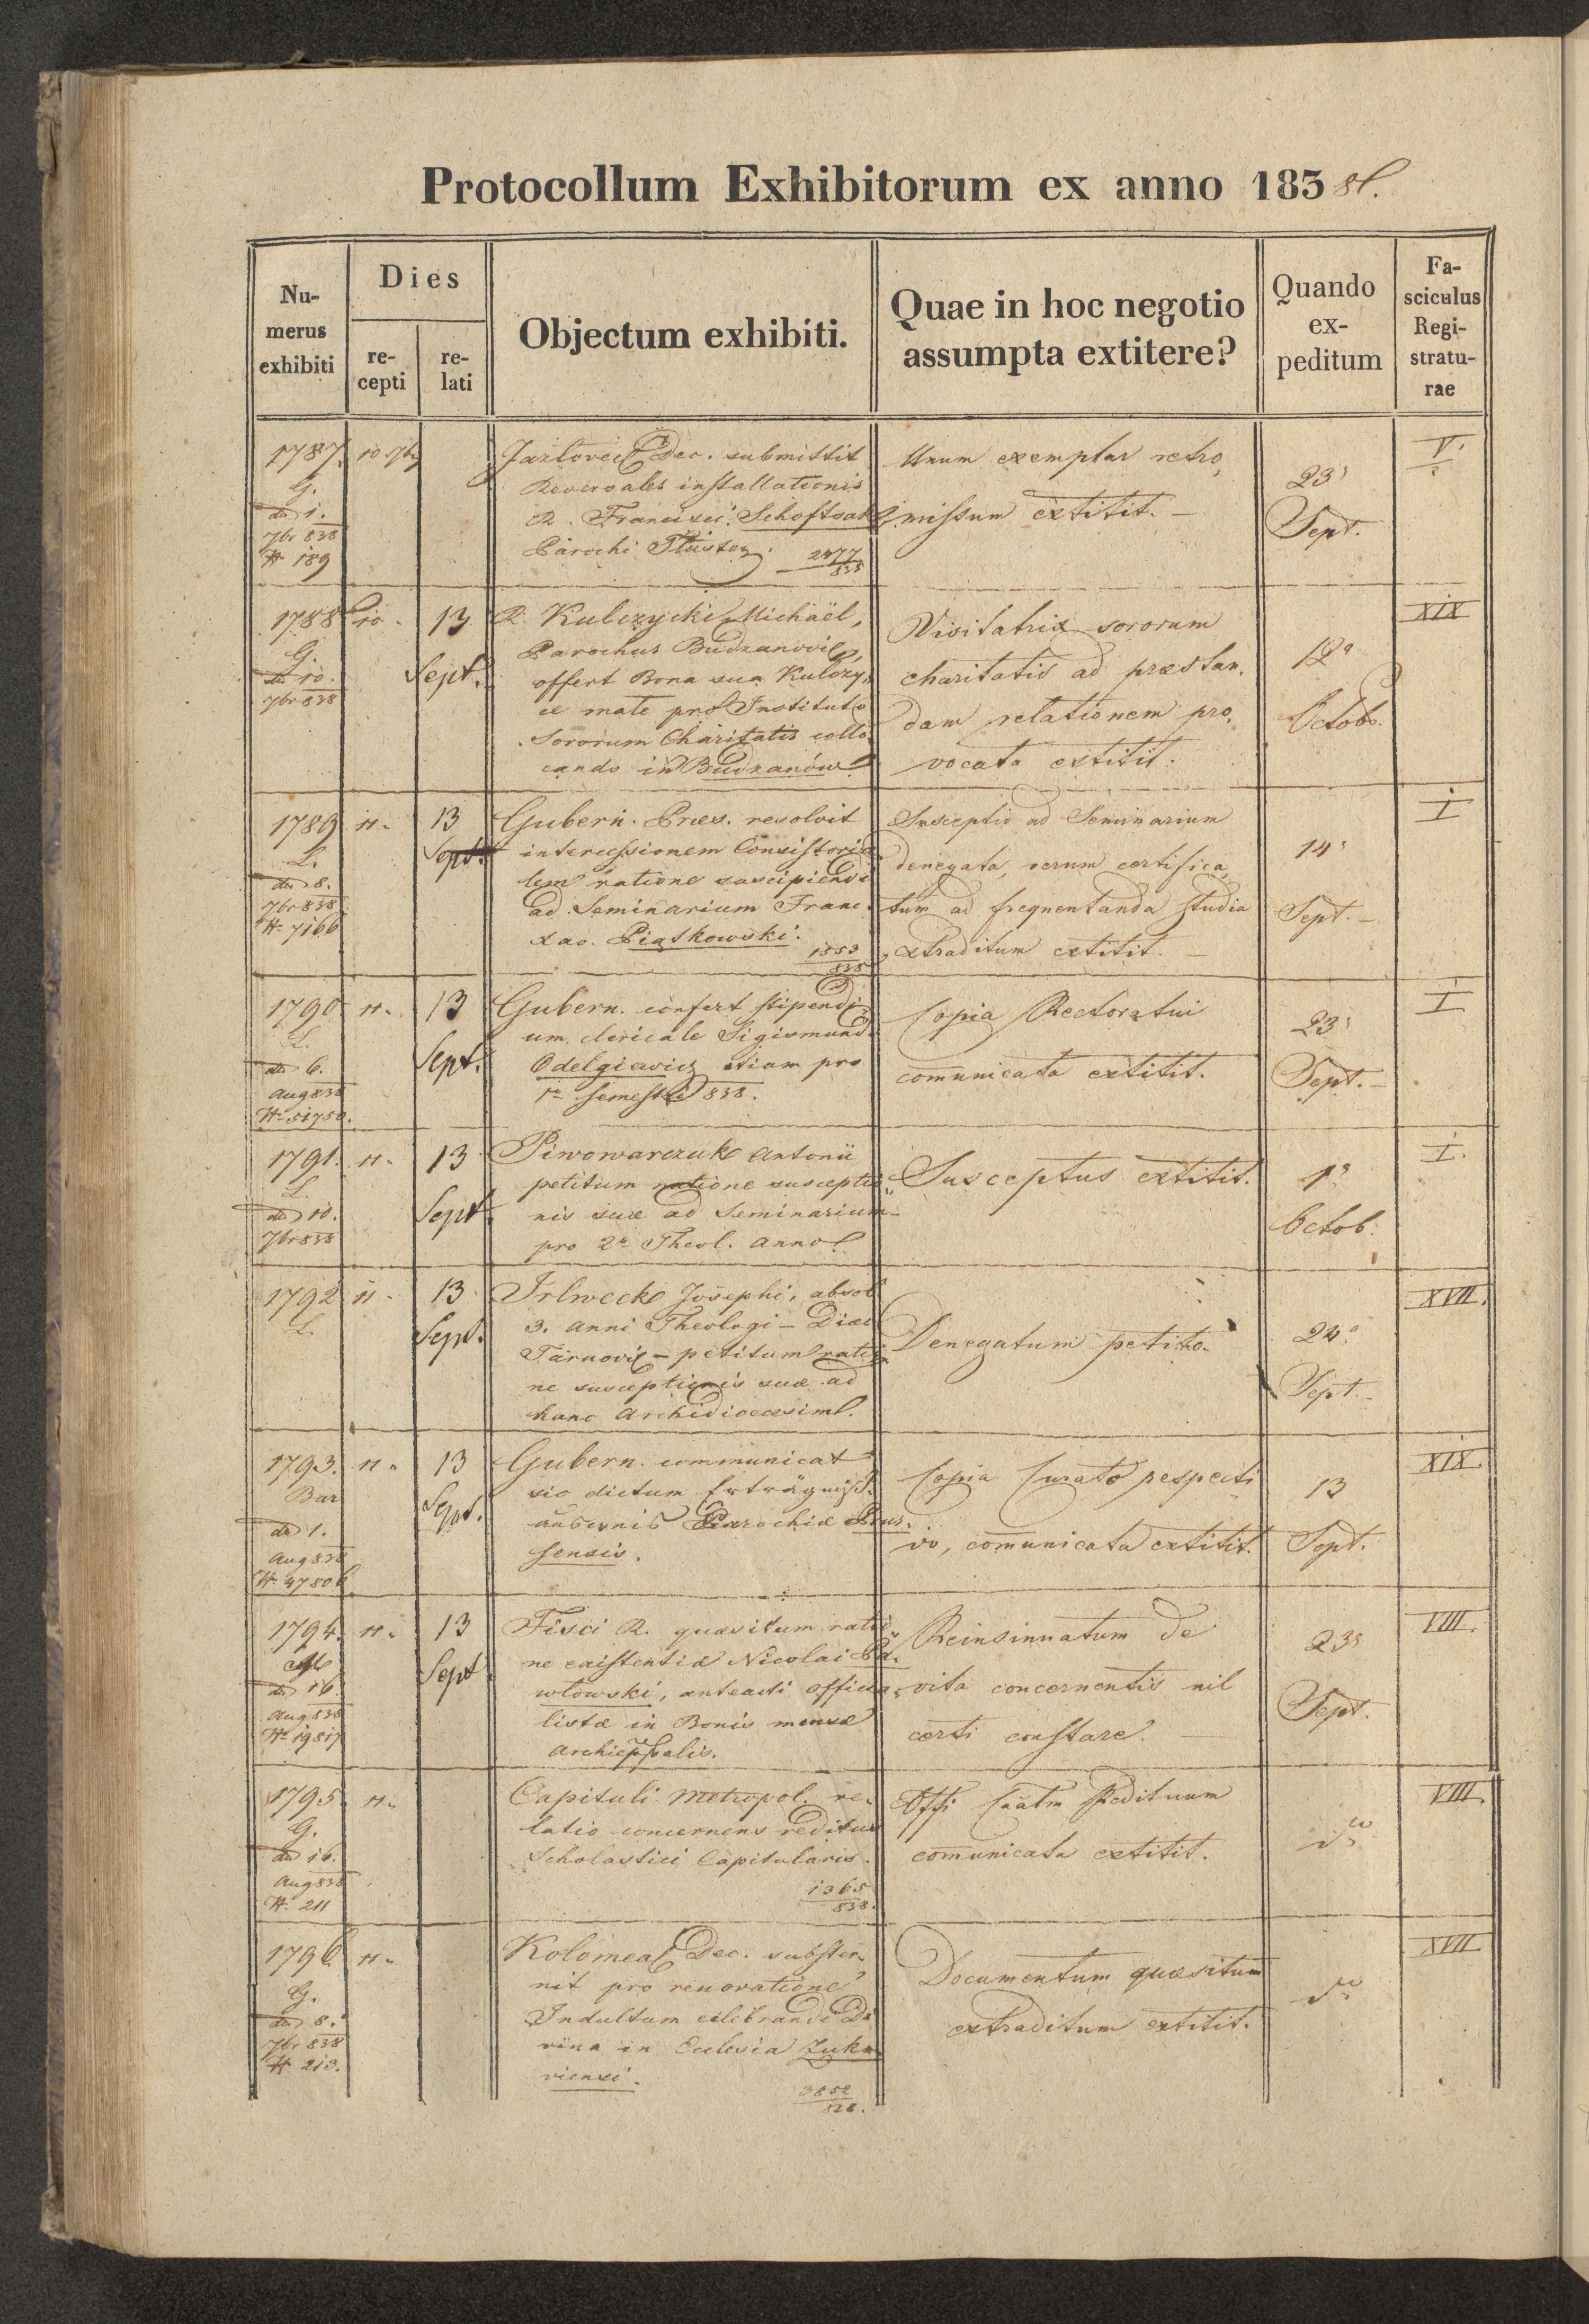 Protocollum Exhibitorum ex anno 1838.
Numerus exhibiti
Dies
recepti
relati
Objectum exhibiti.
Quae in hoc negotio assumpta extitere?
Quando expeditum
Fasciculus Registraturae
1787. 10 7br
G.
dd 1.
7br 838
N 189
Jazlovec Dec. submittit
Reversales installationis
R. Francisci Schoftsak
Parochi Tłuster.
2477
838
Unum exemplar retro
missum extitit. –
23
Sept.
V.
1788 10. 13
G.
dd 10.
7br 838
Sept.
R. Kulczycki Michaël,
Parochus Budzanovie,
offert Bona sua Kulczy
ce mate pro Instituto
Sororum Charitatis collo
cando in Budzanów
Visitatrix sororum
charitatis ad præstan
dam relationem pro
vocata extitit.
12a
Octob.
XIX
1789 11. 13
L.
dd 8.
7br 838
N. 7166
Sept.
Gubern. Præs. resolvit
intercessionem Consistoria
lem ratione suscipiendi
ad Seminarium Franc.
Xav. Piątkowski.
1553
838
Susceptio ad Seminarium
denegata, verum certifica
tum ad frequentanda studia
extraditum extitit. –
14
Sept. –
I
1790 11. 13
L.
dd 6.
Aug 838
N. 51750.
Sept.
Gubern. confert stipendi
um clericale Sigismund.
Odelgiewicz etiam pro
1o semestri 838.
Copia Rectoratui
comunicata extitit.
23
Sept. –
I
1791. 11. 13
L.
dd 10.
7br 838
Sept.
Piwowarczuk Antonii
petitum ratione susceptio
nis suæ ad Seminarium
pro 2o Theol. anno.
Susceptus extitit.
1a
Octob.
I.
1792 11. 13
L.
Sept.
Irlweck Josephi, absol
3. anni Theologi – Diæc
Tarnovi – petitum ratio
ne susceptionis suæ ad
hanc Archidioecesim.
Denegatum petito.
24a
Sept. –
XVII.
1793. 11. 13
Bar
dd 1.
Aug 838
N. 47806
Sept.
Gubern. communicat
sic dictum Erträgniß
ausweis Parochiæ Prus
sensis.
Copia Curato respecti
vo, comunicata extitit.
13
Sept.
XIX.
1794. 11. 13
dd 16.
Aug 838
N. 19817
Sept
Fisci R. quæsitum ratio
ne existentiæ Nicolai Pa
włowski, anteacti officia
listæ in Bonis mensæ
Archieppalis.
Reinsinuatum de
vita concernentis nil
certi constare. –
23
Sept.
VIII.
1795. 11.
G.
dd 16.
Aug 838
N. 211
Capituli Metropol. re
latio concernens reditus
Scholastici Capitularis.
1365
838.
Offi Cuãtm Redituum
comunicata extitit.
do
VIII.
1796 11.
G.
dd 8.
7br 838
N 213.
Kolomea Dec. subster
nit pro renovatione
Indultum celebrandi Di
vina in Ecclesia Zuko
viensi.
3852
828.
Documentum quæsitum
extraditum extitit.
do
XVII